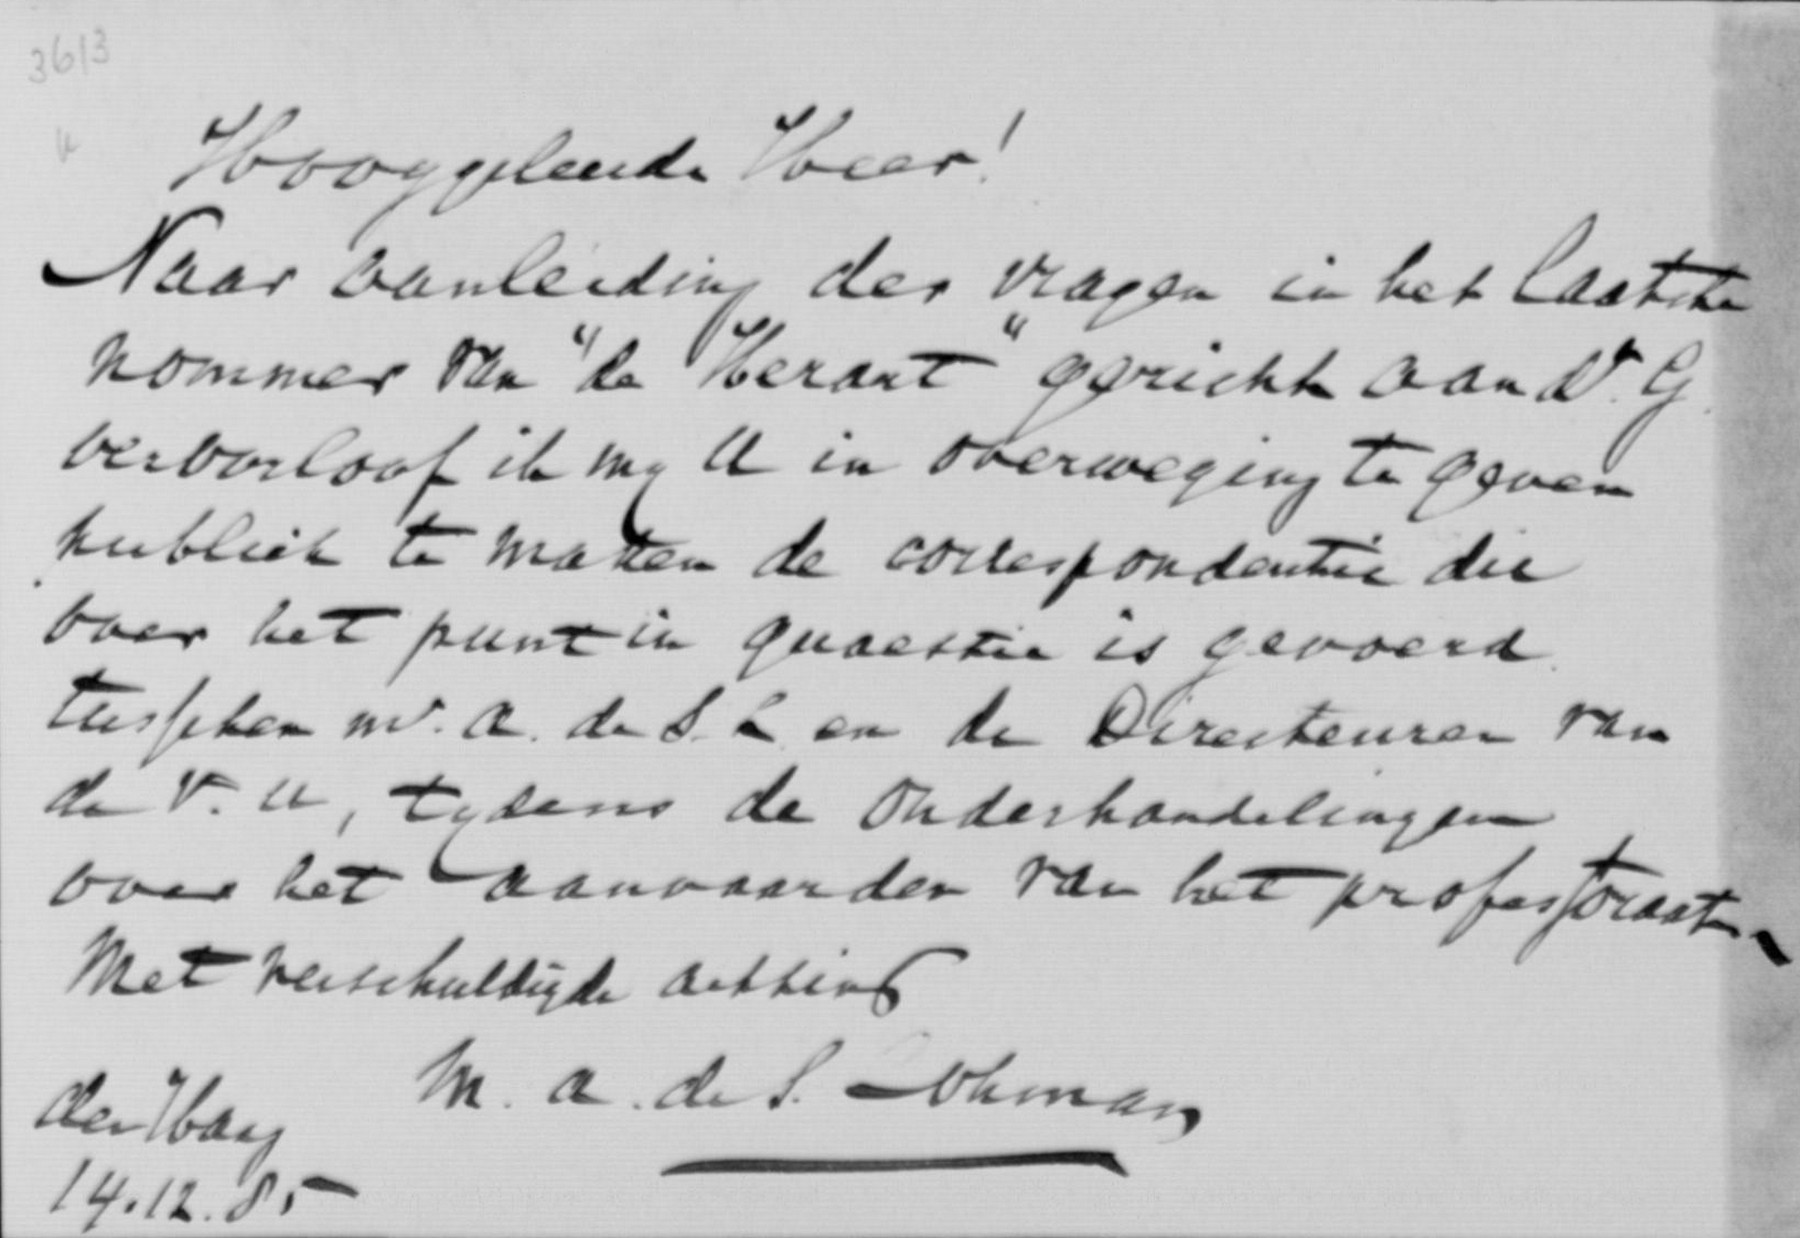 3613
Hooggeleerde Heer!
Naar aanleiding der vragen in het laatste
nommer van "de Heraut" gericht aan Dr. G.
veroorloof ik my U in overweging te geven
publiek te maken de correspondentie die
over het punt in quaestie is gevoerd
tusschen Mr. A. de S. L. en de Directeuren van
de V. U, tydens de onderhandelingen
over het aanvaarden van het professoraat.
Met verschuldigde achting
M. A. de S. Lohman
den Haag
14.12.85